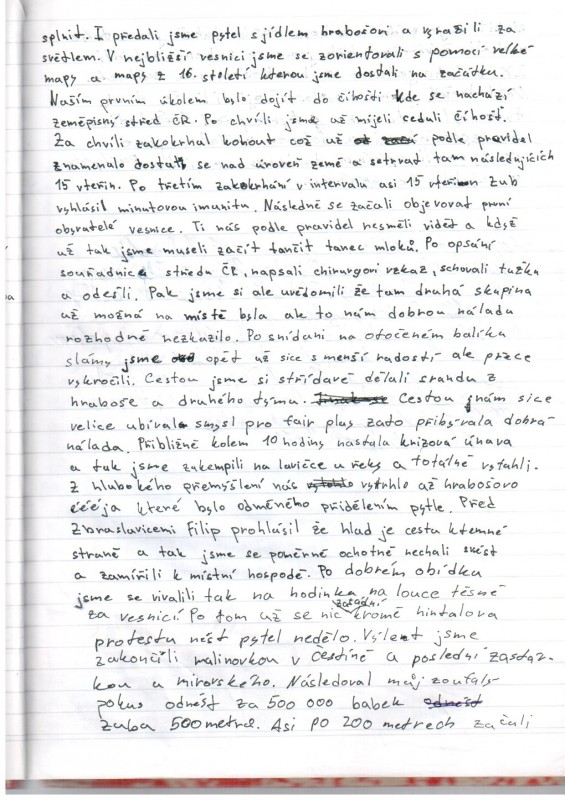 splnit. I předali jsme pytel s jídlem hrabošovi a vyrazili za
světlem. V nejbližší vesnici jsme se zorientovali s pomocí velké
mapy a mapy z 16. století kterou jsme dostali na začátku.
Naším prvním úkolem bylo dojít do číhošti kde se nachází
zeměpisný střed ČR. Po chvíli jsme už míjeli ceduli číhošť.
Za chvíli zakokrhal kohout což už podle pravidel
znamenalo dostat se nad úroveň země a setrvat tam následujících
15 vteřin. Po třetím zakokrhání v intervalu asi 15 vteřin zub
vyhlásil minutovou imunitu. Následně se začali objevovat první
obyvatelé vesnice. Ti nás podle pravidel nesměli vidět a když
už tak jsme museli začít tančit tanec mloků. Po opsání
souřadnic středu ČR, napsali chirurgovi vzkaz, schovali tužku
a odešli. Pak jsme si ale uvědomili že tam druhá skupina
už možná na místě byla ale to nám dobrou náladu
rozhodně nezkazilo. Po snídani na otočeném balíku
slámy jsme opět už sice s menší radostí ale přece
vykročili. Cestou jsme si střídavě dělali srandu z
hraboše a druhého týmu. Cestou nám sice
velice ubíval smysl pro fair play zato přibývala dobrá
nálada. Přibližně kolem 10 hodiny nastala krizová únava
a tak jsme zakempili na lavičce u řeky a totálně vytuhli.
Z hlubokého přemýšlení nás vytrhlo až hrabošovo
éééja které bylo odměněno přidělením pytle. Před
Zbraslavicemi Filip prohlásil že hlad je cesta k temné
straně a tak jsme se poměrně ochotně nechali svést
a zamířili k místní hospodě. Po dobrém obídku
jsme se vyvalili tak na hodinku na louce těsně
za vesnicí. Po tom už se nic zásadní kromě hintalova
protestu nést pytel nedělo. Výlet jsme
zakončili malinovkou v Čestíně a poslední zastáv-
kou u mirovského. Následoval můj zoufalý
pokus odnést za 500 000 babek
zuba 500 metrů. Asi po 200 metrech začali